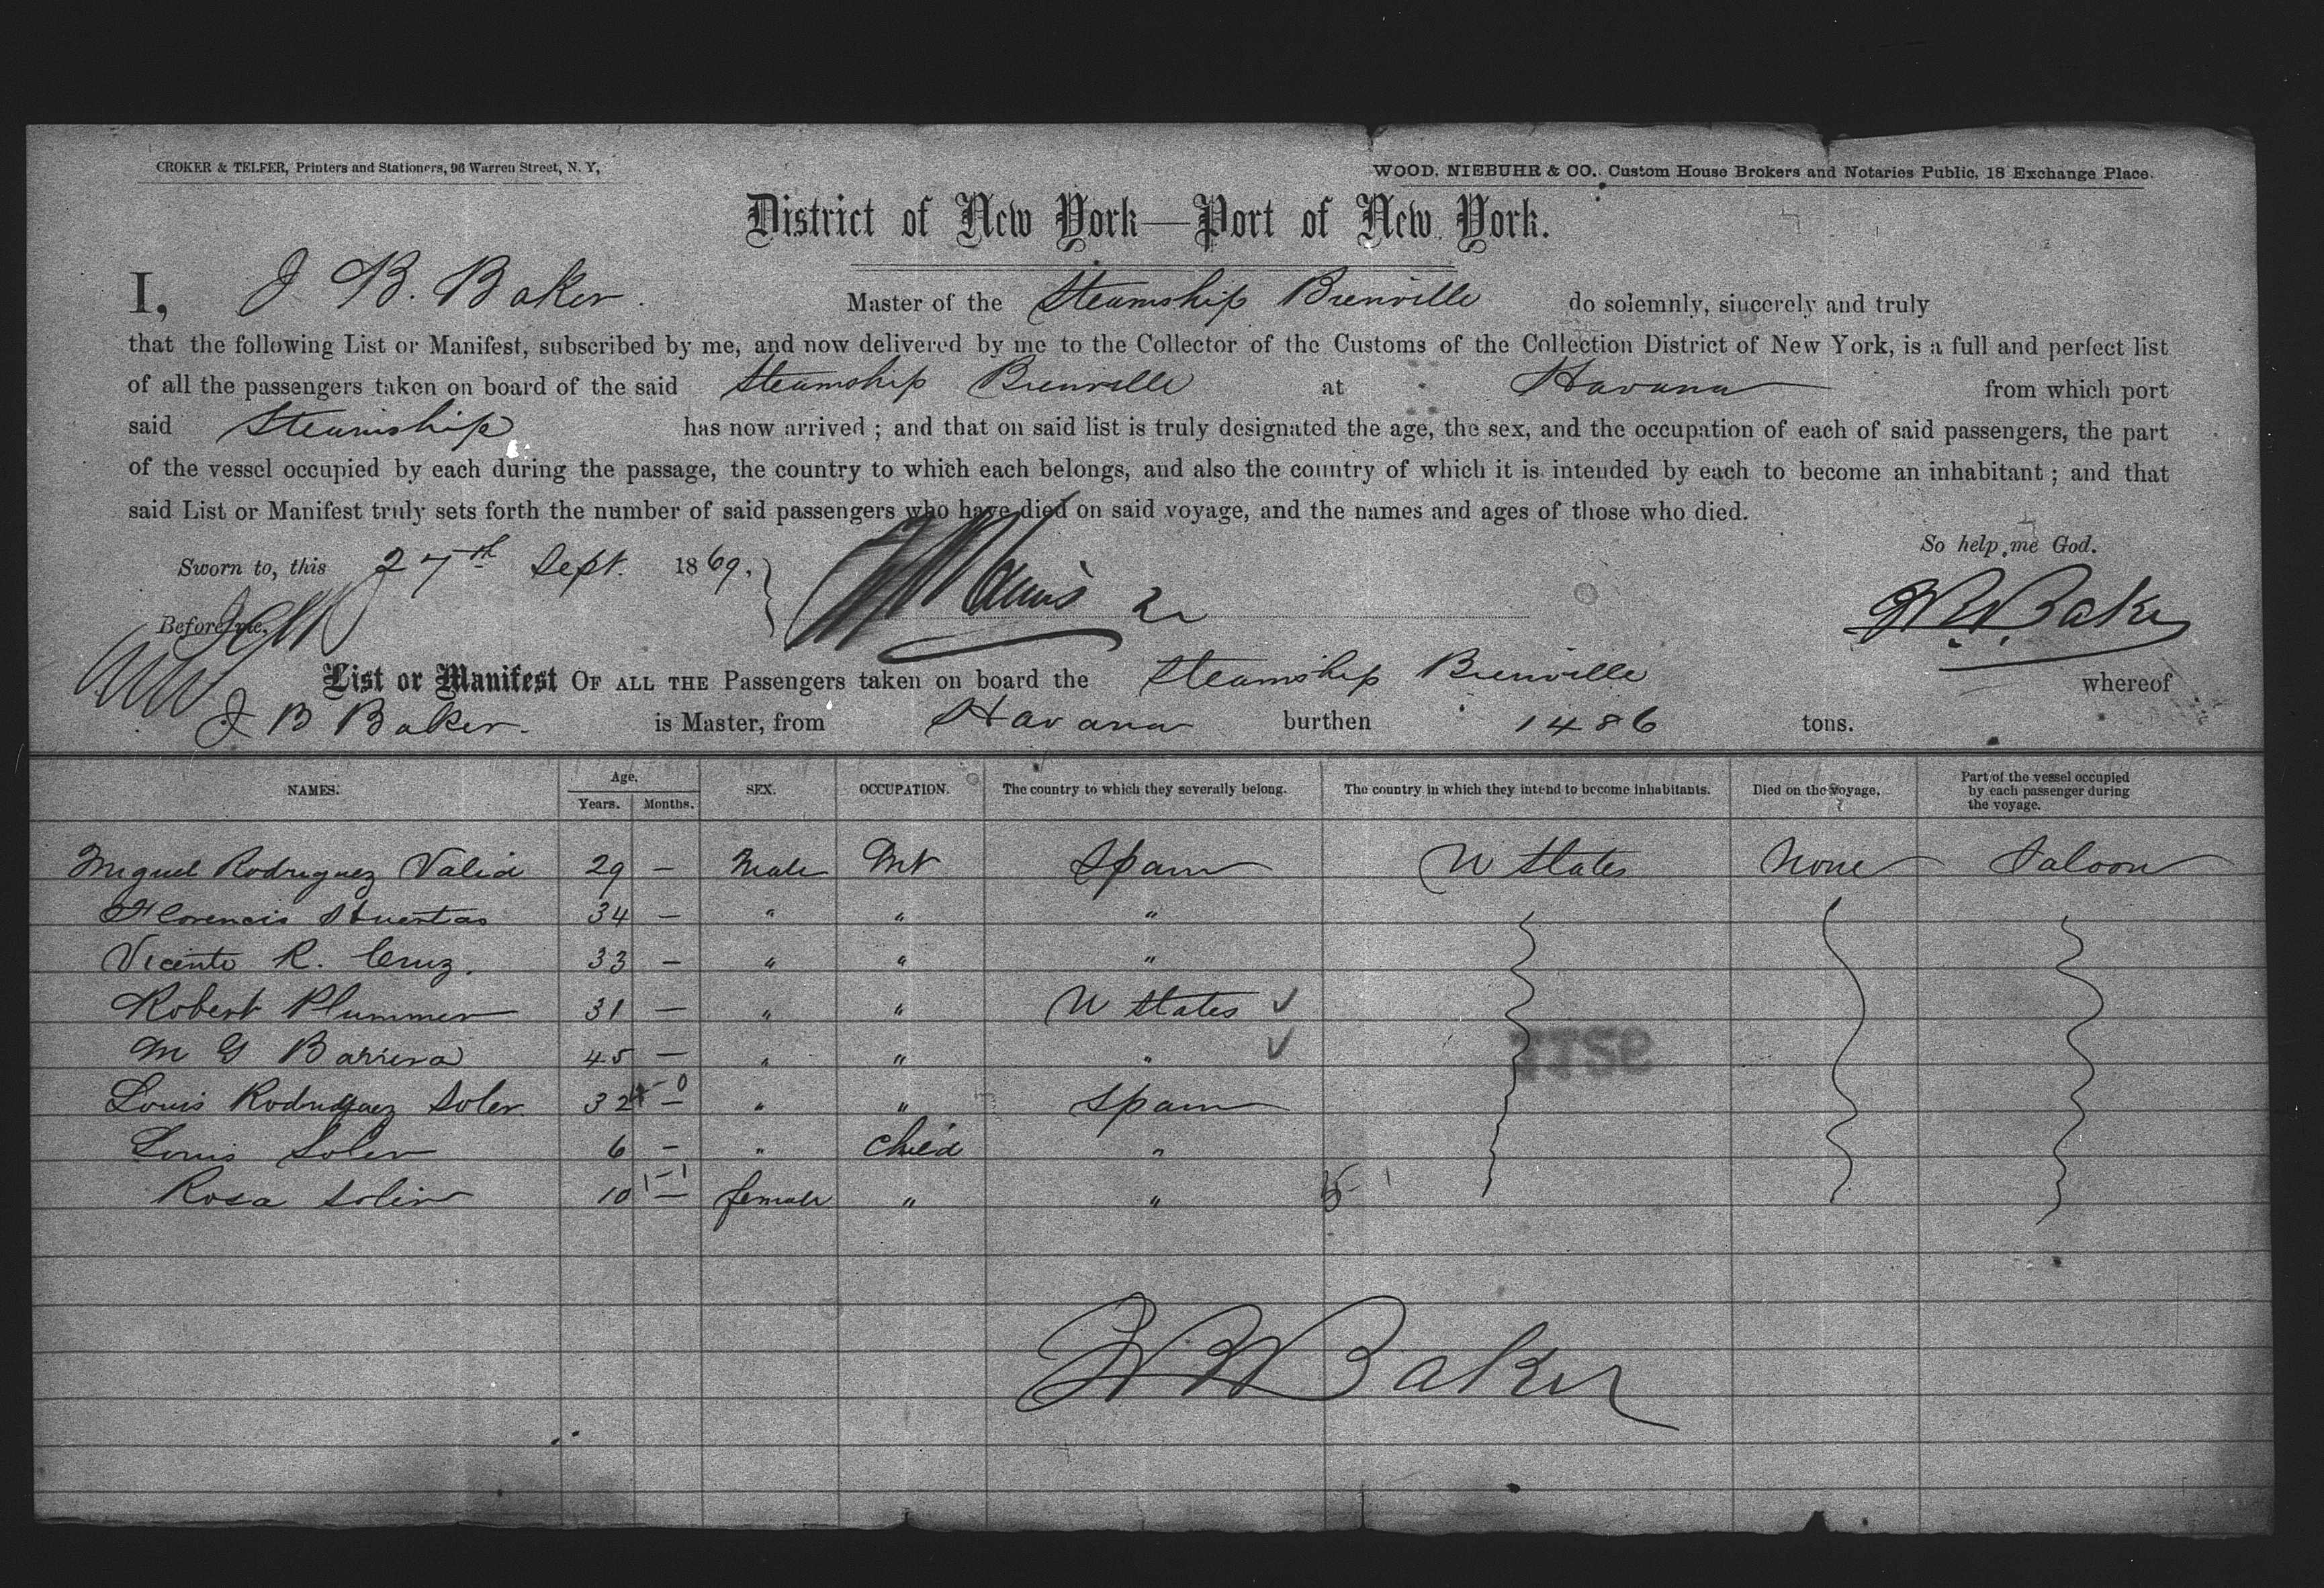 CROKER & TELFER, Printers and Stationers, 96 Warren Street, N. Y,
WOOD, NIEBUHR & CO., Custom House Brokers and Notaries Public, 18 Exchange Place.
District of New York—Port of New York.
I, J B. Baker. Master of the Steamship Bienville do solemnly, sincerely and truly
that the following List or Manifest, subscribed by me, and now delivered by me to the Collector of the Customs of the Collection District of New York, is a full and perfect list
of all the passengers taken on board of the said Steamship Bienville at Havana from which port
said Steamship has now arrived ; and that on said list is truly designated the age, the sex, and the occupation of each of said passengers, the part
of the vessel occupied by each during the passage, the country to which each belongs, and also the country of which it is intended by each to become an inhabitant ; and that
said List or Manifest truly sets forth the number of said passengers who have died on said voyage, and the names and ages of those who died.
So help me God.
Sworn to, this 27th Sept. 1869.
Before me, Baker
List or Manifest OF ALL THE Passengers taken on board the Steamship Bienville whereof
J B Baker. is Master, from Havana burthen 1486 tons.
NAMES. Age. Years. Months. SEX. OCCUPATION. The country to which they severally belong. The country in which they intend to become inhabitants. Died on the voyage. Part of the vessel occupied by each passenger during the voyage.
Miguel Rodriguez Valid 29 — Male Mt Spain U States None Saloon
Florencis Huertas 34 — " " "
Vicente R. Cruz. 33 — " " "
Robert Plummer 31 — " " U States ✓
M G Barrera 45 — " " " ✓
Louis Rodriguez Soler 32 — " " Spain
Louis Soler 6 — " Child "
Rosa Soler 10 — female " "
Baker